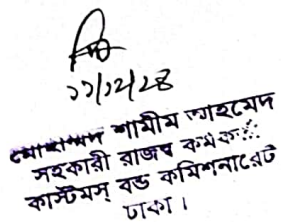 ১১/১২/২৪
মোহাম্মদ শামীম আহমেদ
সহকারী রাজস্ব কর্মকর্তা
কাস্টমস্ বন্ড কমিশনারেট
ঢাকা।